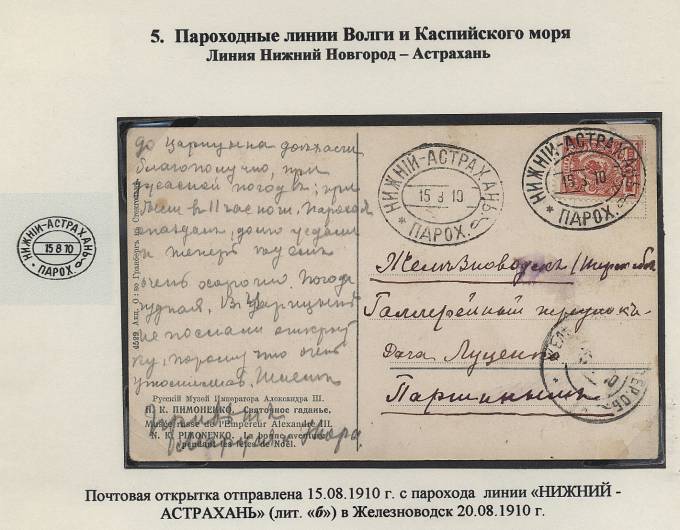 5. Пароходные линии Волги и Каспийского моря
Линия Нижний Новгород – Астрахань
до Царицына доехали
благополучно, при
ужасной погоде; при
были в 11 час ночи. Пароход
опаздал, долго
и теперь
очень хорошо. Погода
чудная, В Царицыне
не послали открыт
ку, потому что очень
4529. Акц. О-во Гранберг в Стокгольме
Русскій Музей Императора Александра III.
Н. К. ПИМОНЕНКО. Святочное гаданье.
Musée russe de l'Empereur Alexandre III.
N. K. PIMONENKO. La bonne aventure
pendant les fêtes de Noël.
НИЖНІЙ-АСТРАХАНЬ
15 8 10
* ПАРОХ. б
НИЖНІЙ-АСТРАХАНЬ
15 8 10
* ПАРОХ. б
Желѣзноводскъ
Галлерейный переулокъ
Дача Луценко
Паршинымъ
НИЖНІЙ-АСТРАХАНЬ
15 8 10
* ПАРОХ. б
Почтовая открытка отправлена 15.08.1910 г. с парохода линии «НИЖНИЙ -
АСТРАХАНЬ» (лит. «б») в Железноводск 20.08.1910 г.